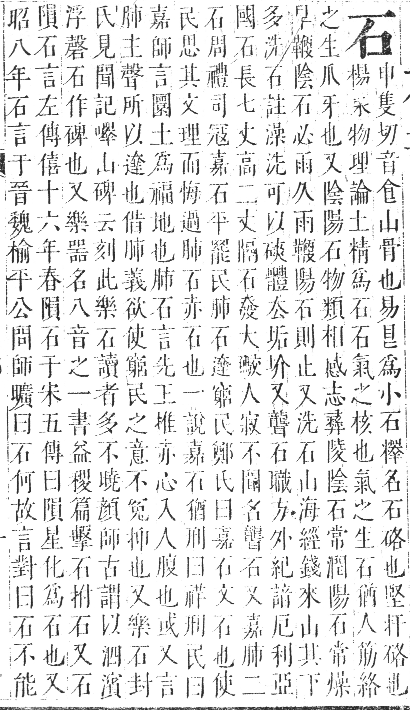 石
中隻切音𥐙山骨也易艮爲小石擇名石硌也堅捍硌也
楊泉物理論土精爲石石氣之核也氣之生石猶人筋絡
之生爪牙也又陰陽石物類相感志彝陵陰石常潤陽石常燥
旱鞭陰石必雨久雨鞭陽石則止又洗石山海經錢來山其下
多洗石註澡洗可以磢體去垢圿又聾石職方外紀諳厄利亞
國石長七丈高二丈隔石發大噉人寂不聞名聾石又嘉肺二
石周禮司冦嘉石平罷民肺石達窮民鄭氏曰嘉石文石也使
民思其文理而悔過肺石赤石也一說嘉石猶刑曰祥刑民曰
嘉師言圜土爲福地也肺石言先王推赤心入人腹也或又言
肺主聲所以達也借肺義欲使窮民之意不冤抑也又樂石封
氏見聞記嶧山碑云刻此樂石讀者多不曉顏師古謂以泗濱
浮磬石作碑也又樂器名八音之一書益稷篇擊石拊石又石
隕石言左傳僖十六年春隕石于宋五傳曰隕星化爲石也又
昭八年石言于晉魏榆平公問師曠曰石何故言對曰石不能